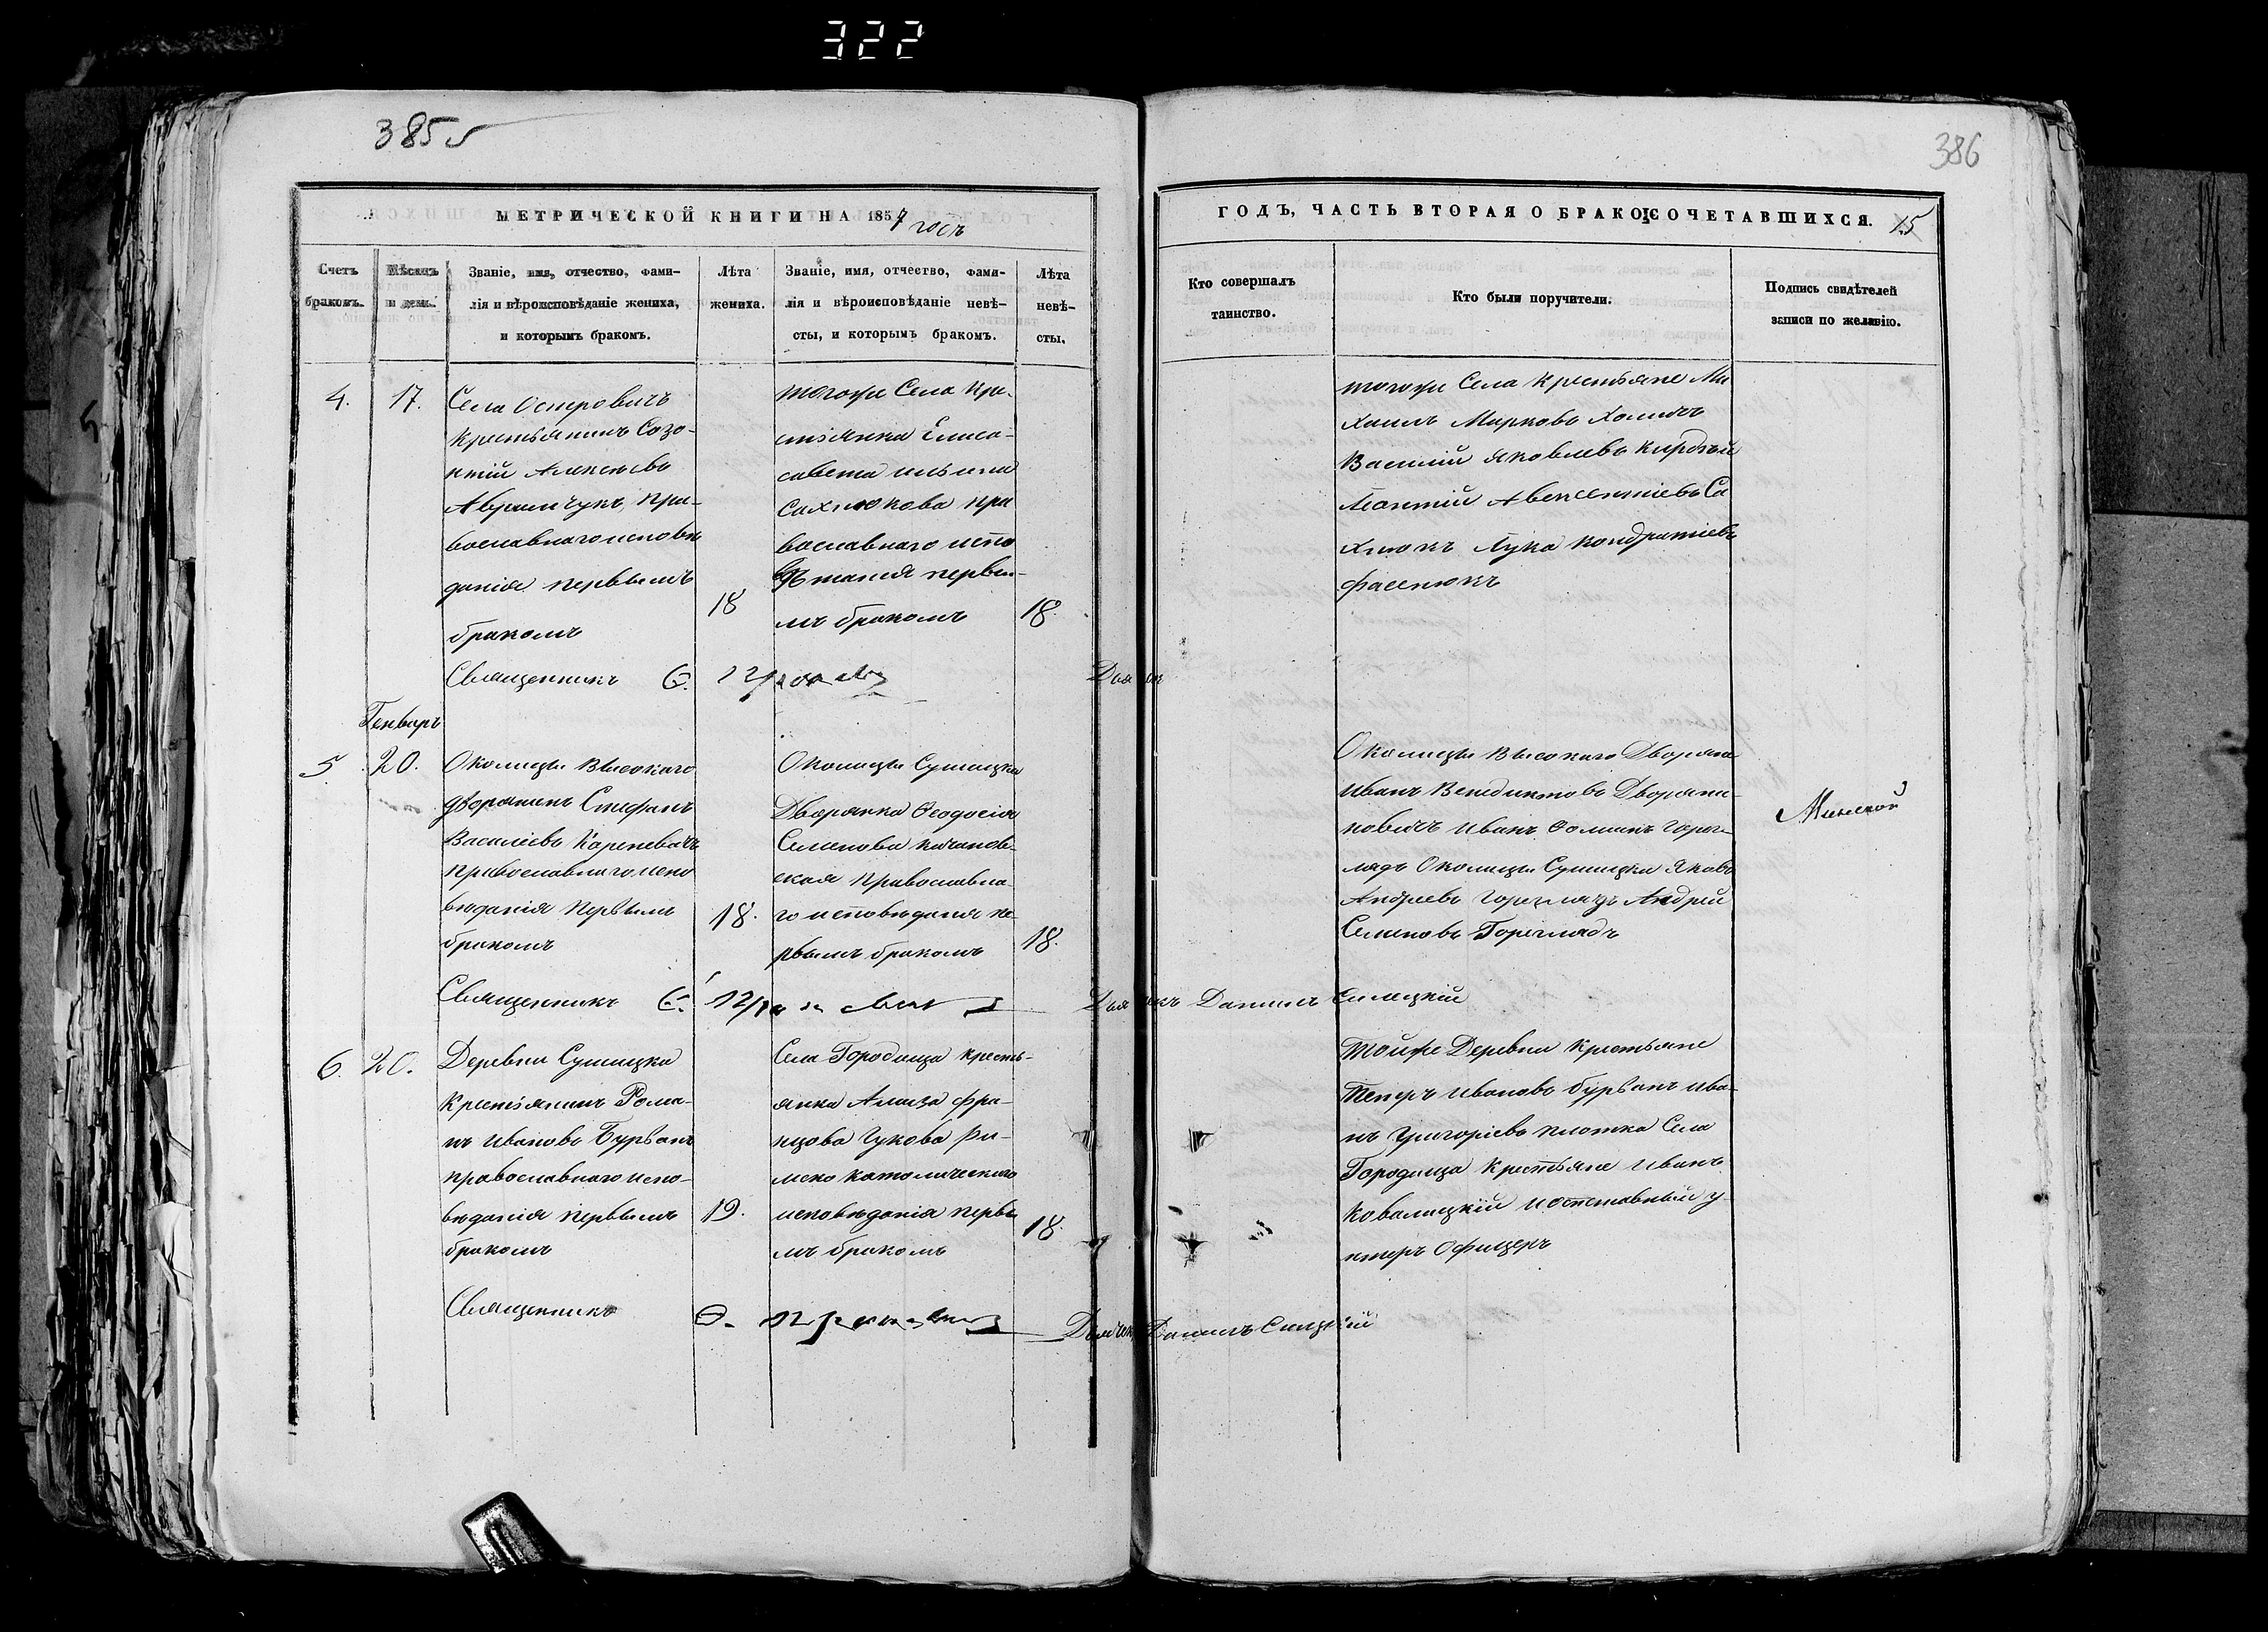 322
385
386
МЕТРИЧЕСКОЙ КНИГИ НА 1857 годъ
ГОДЪ, ЧАСТЬ ВТОРАЯ О БРАКОСОЧЕТАВШИХСЯ. 15
Счетъ
браковъ.
Мѣсяцъ
и день.
Званіе, имя, отчество, фами-
лія и вѣроисповѣданіе жениха,
и которымъ бракомъ.
Лѣта
жениха.
Званіе, имя, отчество, фами-
лія и вѣроисповѣданіе невѣ-
сты, и которымъ бракомъ.
Лѣта
невѣ-
сты.
Кто совершалъ
таинство.
Кто были поручители.
Подпись свидѣтелей
записи по желанію.
4.
17.
Села Островичъ
Крестьянинъ Созо-
нтій Алексѣевъ
Аврамчукъ, Пра-
вославнаго исповѣ
данія первымъ
бракомъ
18
тогоже Села Кре-
стьянка Елиса-
авета
Сахнюкова пра
вославнаго испо
вѣтанія первы-
мъ бракомъ
18.
тогоже Села крестьяне Ми
хаилъ Марковъ
Василій Яковлевъ
Леонтій Авксентіевъ Са
хнюкъ Лука Кондратіевъ
Священникъ
Генваръ
5
20.
Околицы Высокаго
дворянинъ Стефанъ
Василіевъ Кареневичъ
православнаго испо
вѣданія первымъ
бракомъ
18.
Околицы Сушицка
Дворянка Ѳеодосія
Семенова Качанов-
ская православна-
го исповѣданія пе-
рвымъ бракомъ
18.
Околицы Высокаго Дворяне
Иванъ Венедиктовъ Дворяни-
новичъ Иванъ Ѳоминъ Горег-
лядъ Околицы Сушицка Яковъ
Андреевъ Гореглядъ Андрей
Семеновъ Гореглядъ
Священникъ
Дьячекъ Даниилъ Силецкій
6.
20.
Деревни Сушицка
Крестьянинъ Рома-
нъ Ивановъ Бурванъ
православнаго испо-
вѣданія первымъ
бракомъ
19.
Села Городища кресть-
янка Ализа Фра-
нцова Гукова Ри-
мско католическаго
исповѣданія первы
мъ бракомъ
18.
тойже Деревни крестьяне
Петръ Ивановъ Бурванъ Ива-
нъ Григоріевъ Плотка Села
Городища Крестьяне Иванъ
Ковалицкій и отставный у-
нтеръ офицеръ
Священникъ
Дьячекъ Даниилъ Силецкій